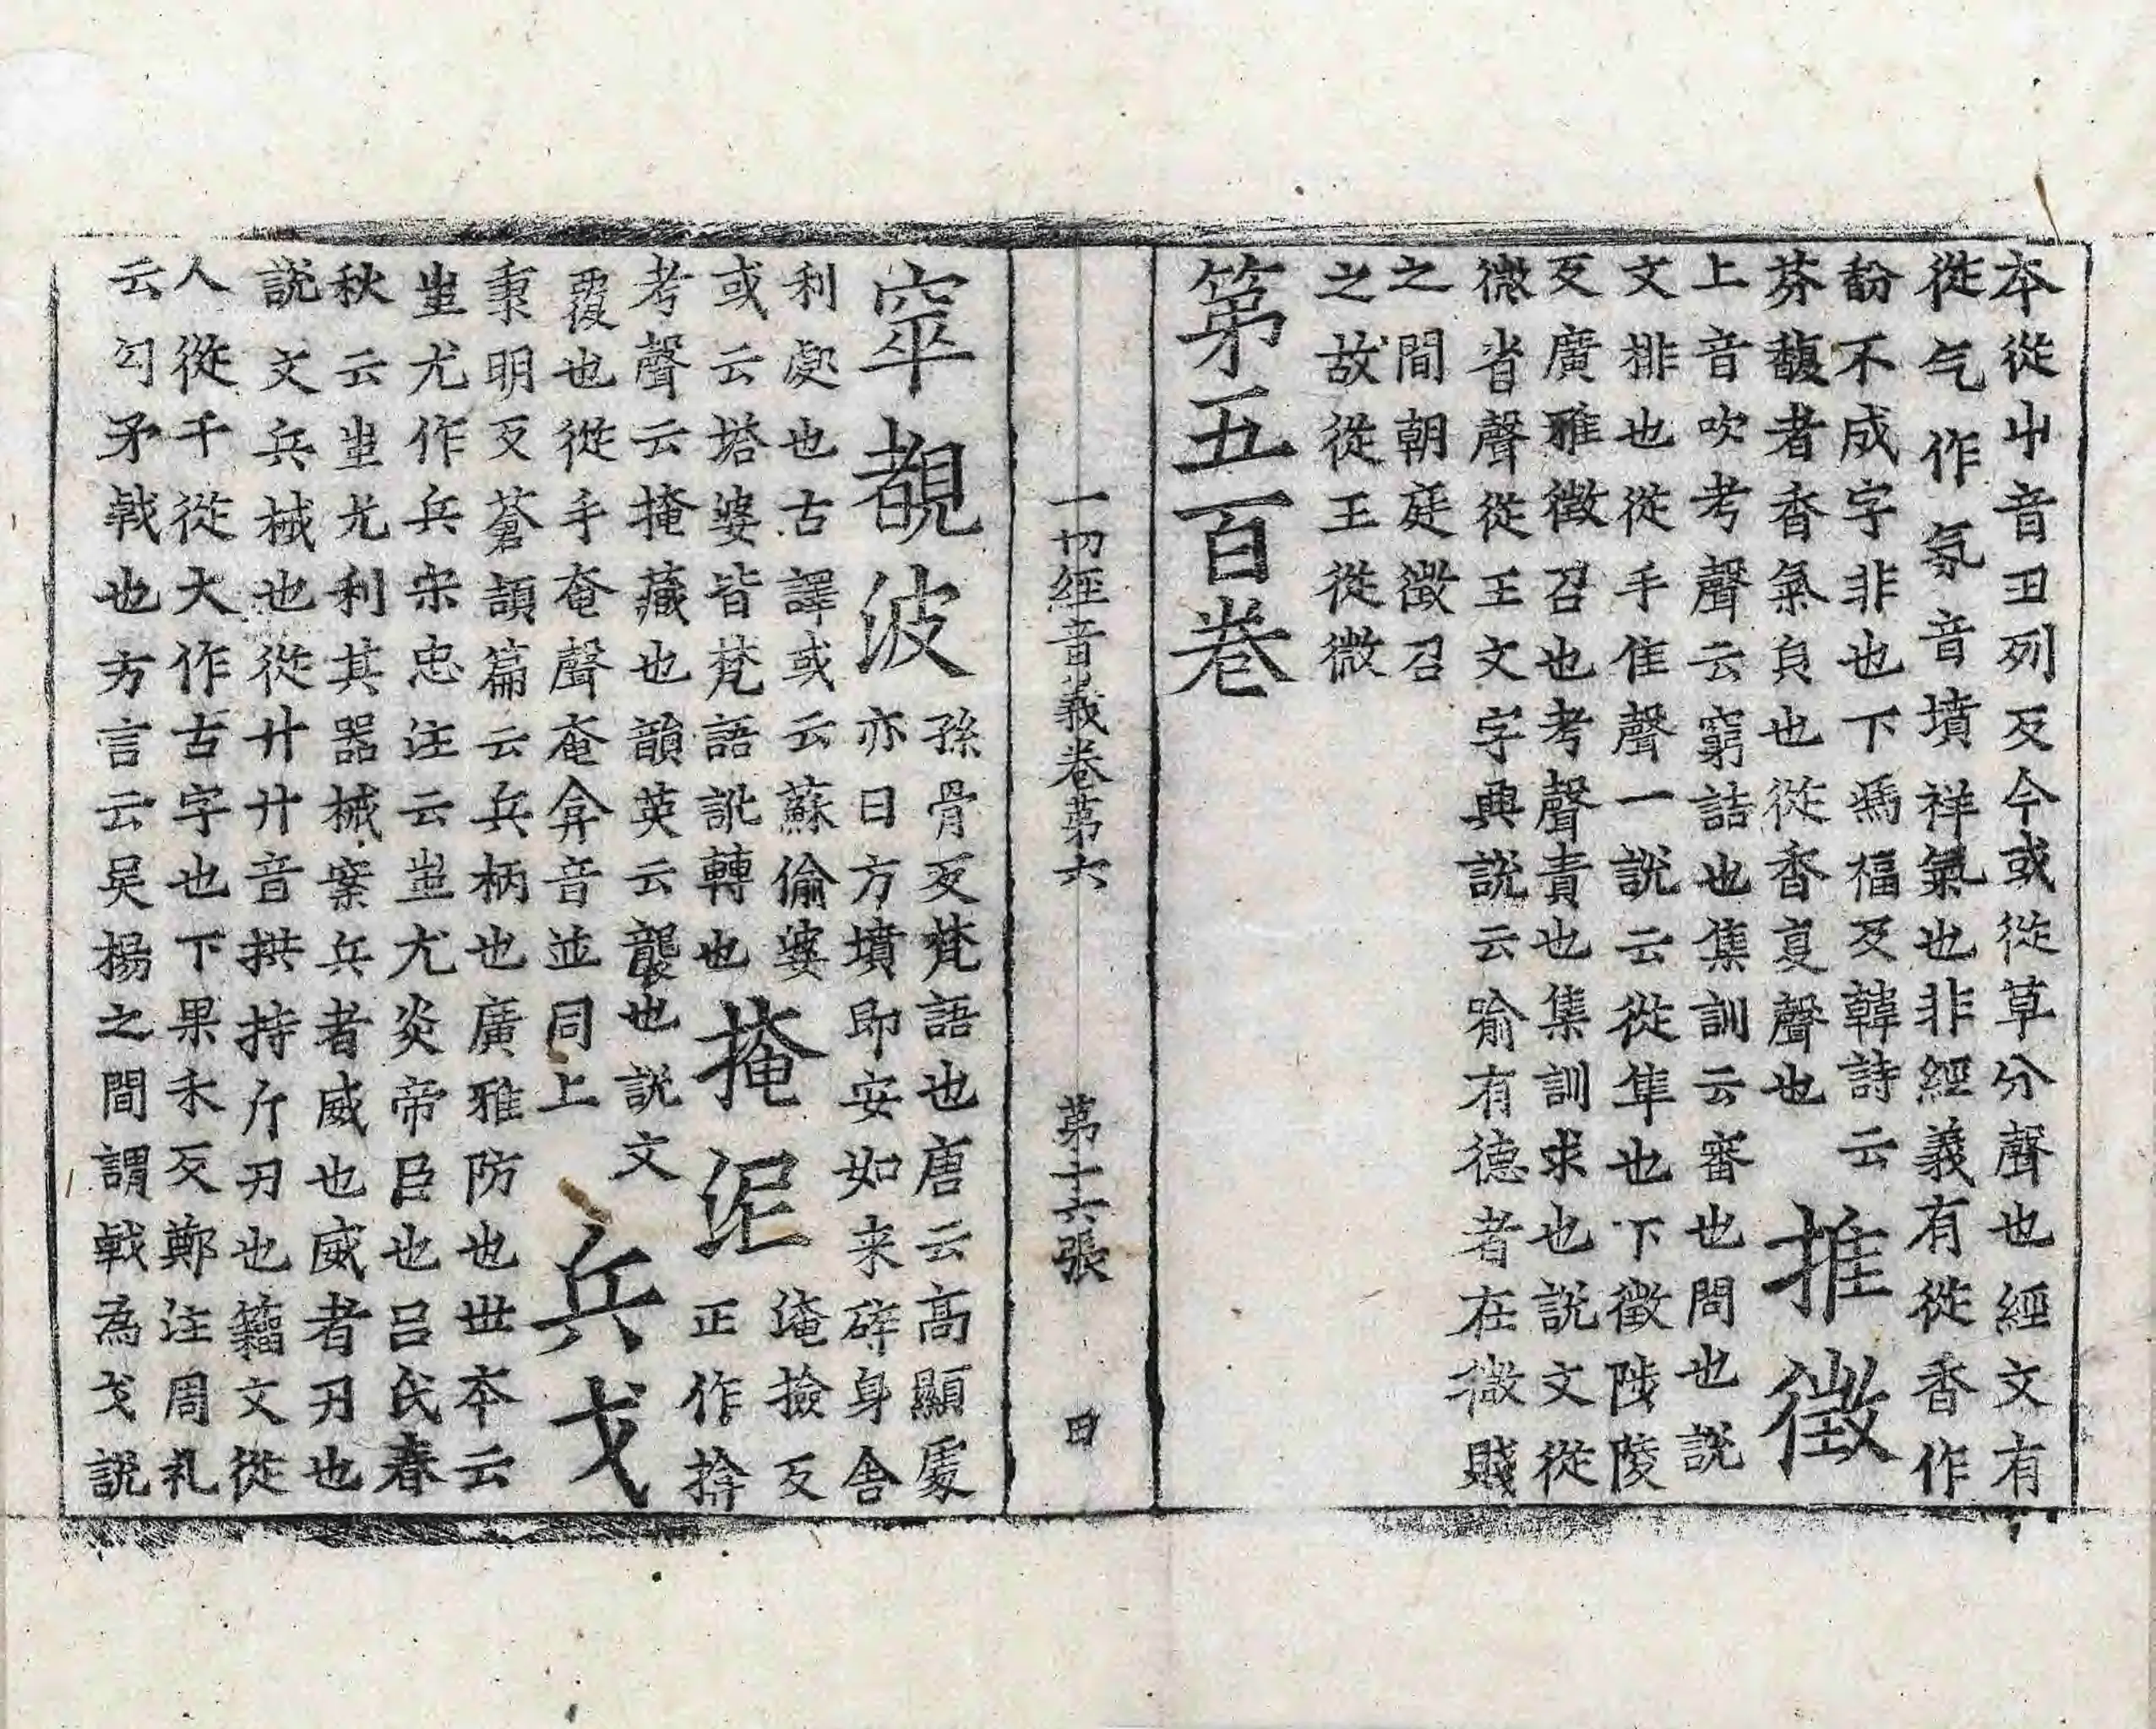 本從屮音丑列反今或從草分聲也經文有
從气作氛音墳祥氣也非經義有從香作
馚不成字非也下馮福反韓詩云
芬馥者香氣負也從香𡕨聲也
推徵
上音吹考聲云窮詰也集訓云審也問也說
文排也從手隹聲一說云從隼也下徵陟陵
反廣雅徵召也考聲責也集訓求也說文從
微省聲從王文字典說云喻有德者在微賤
之間朝庭徵召
之故從王從微
第五百卷
一切經音義卷第六　第十六張　田
窣覩波
孫骨反梵語也唐云高顯處
亦曰方墳即安如来碎身舍
利處也古譯或云蘇偷婆
或云塔婆皆梵語訛轉也
掩泥
淹撿反
正作揜
考聲云掩藏也韻英云襲也說文
覆也從手奄聲奄弇音並同上
兵戈
秉明反蒼頡篇云兵柄也廣雅防也世本云
蚩尤作兵宋忠注云蚩尤炎帝臣也呂氏春
秋云蚩尤利其器械案兵者威也威者刃也
說文兵械也從廾廾音拱持斤刃也籀文從
人從干從大作古字也下果禾反鄭注周礼
云勾矛戟也方言云吴揚之間謂戟為戈說